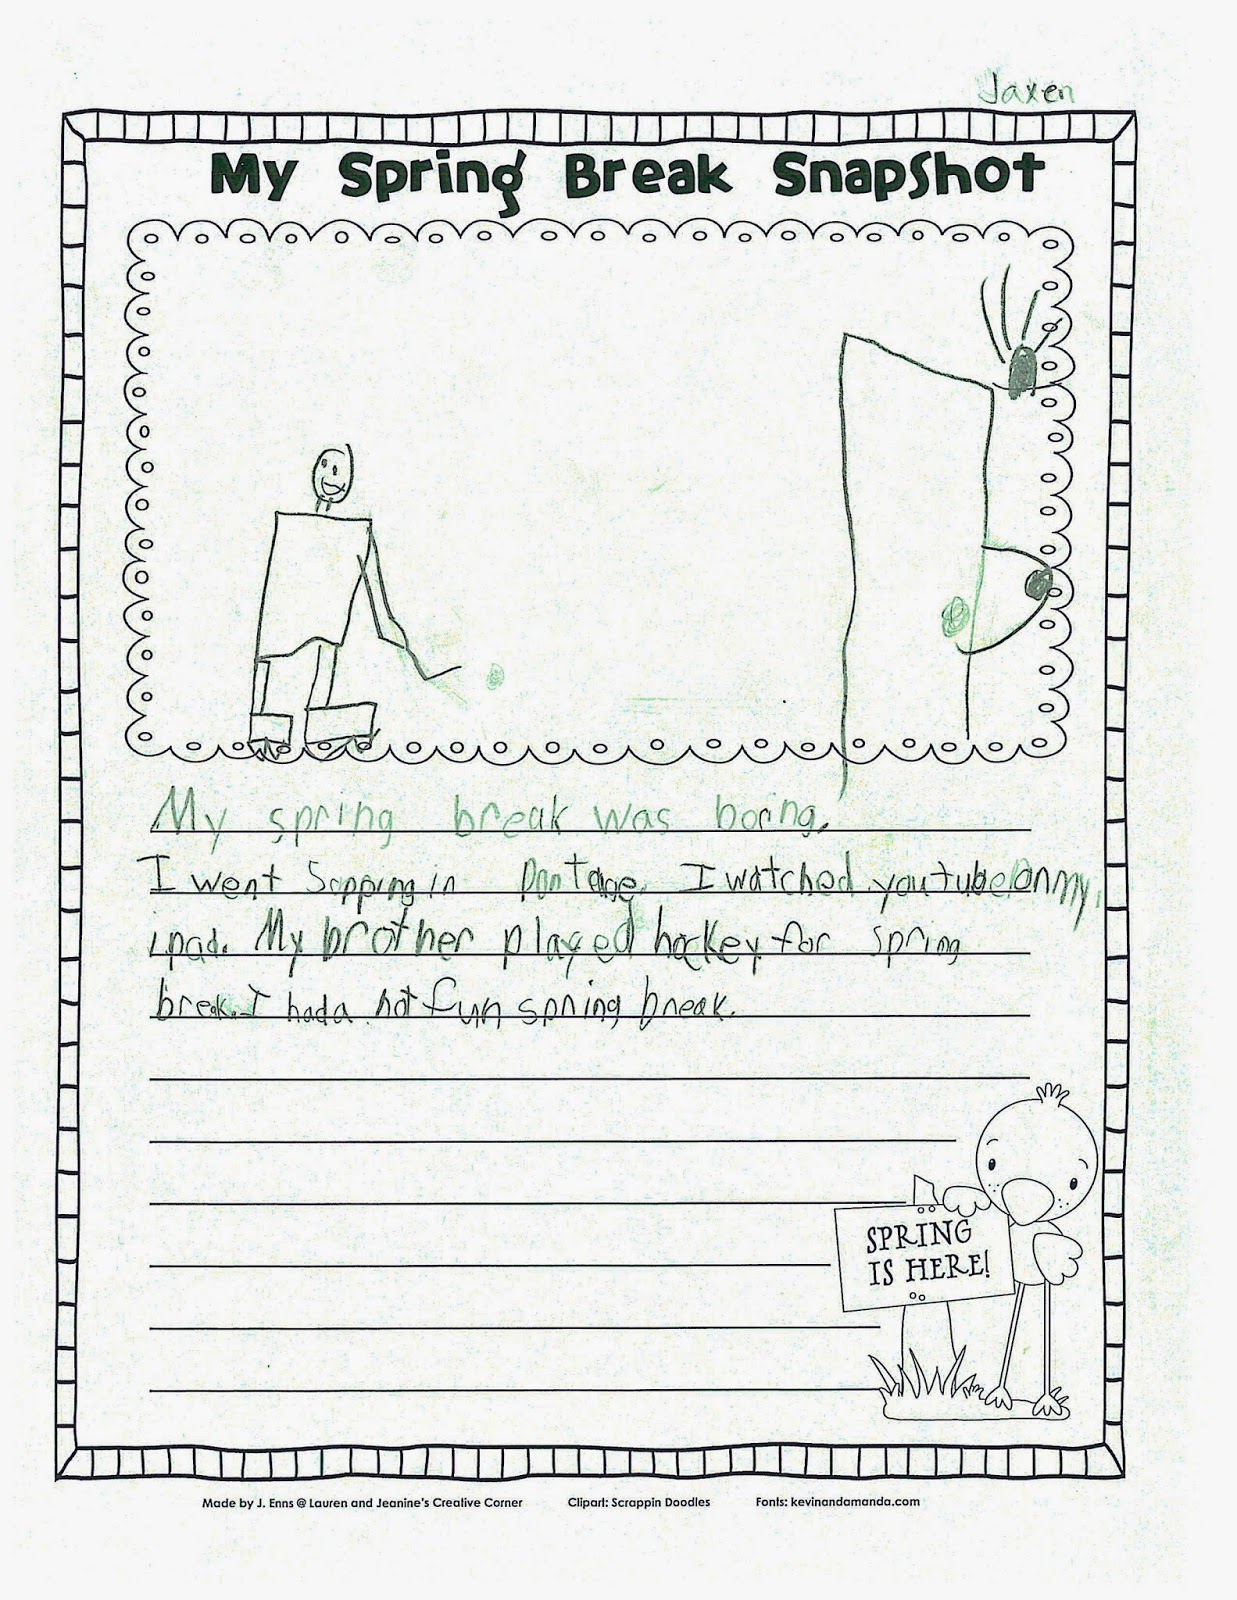 Jaxen
My Spring Break Snapshot
My spring break was boring.
I went Sopping in Portage. I watched youtube on my
ipad. My brother played hockey for spring
break. I had a not fun spring break.
SPRING
IS HERE!
Made by J. Enns @ Lauren and Jeanine's Creative Corner Clipart: Scrappin Doodles Fonts: kevinandamanda.com